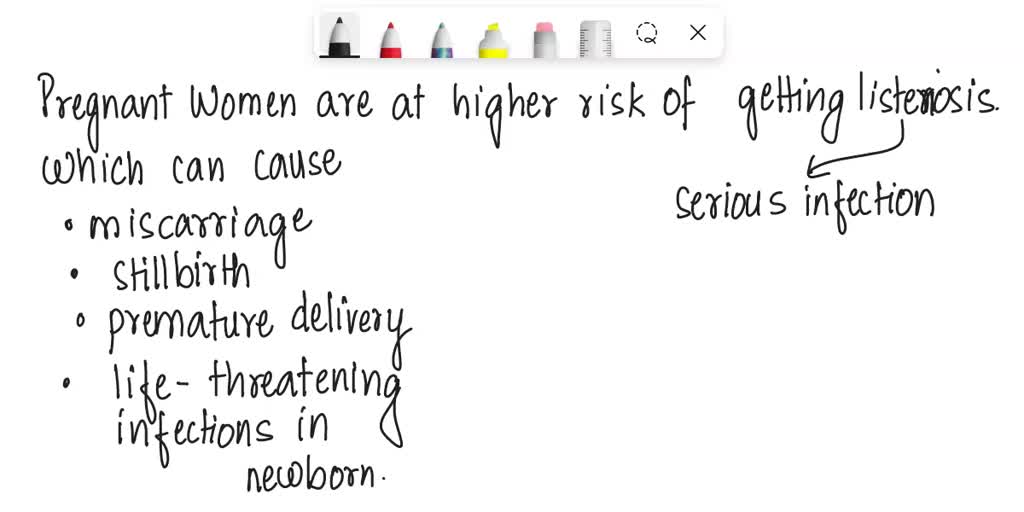 Pregnant Women are at higher risk of getting listeriosis.
which can cause
serious infection
• miscarriage
• stillbirth
• premature delivery
• life-threatening
infections in
newborn.